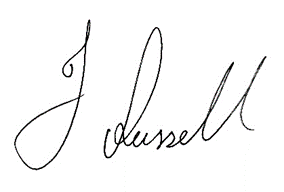 J Russell